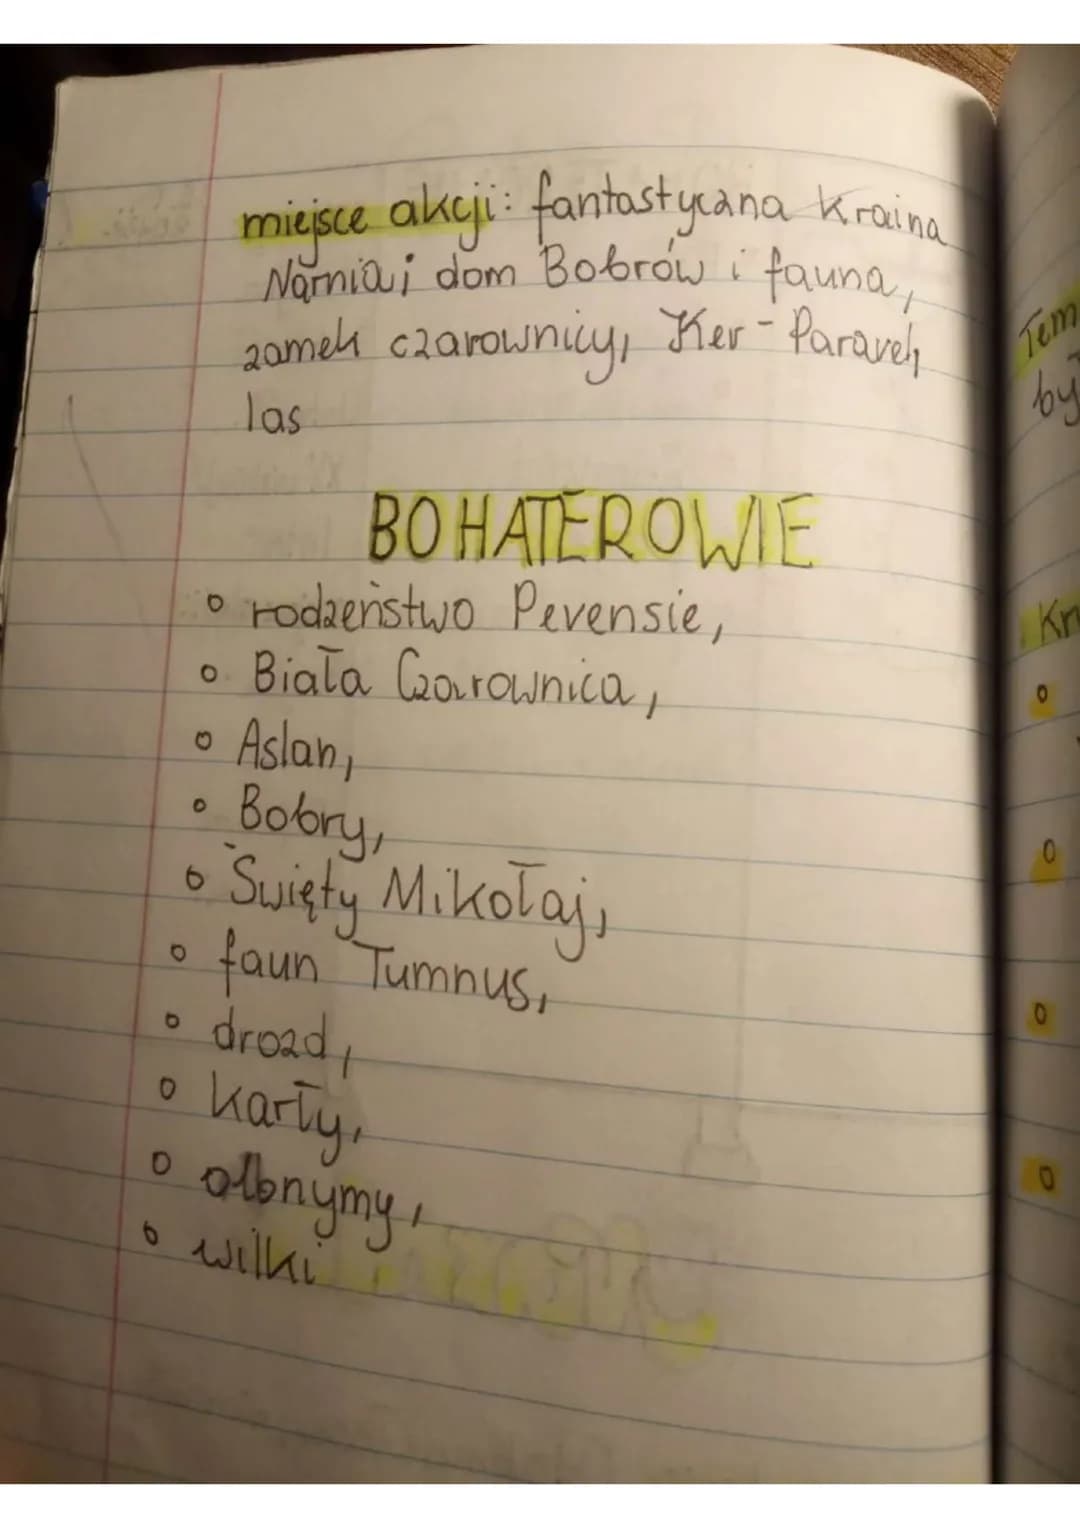 miejsce akcji: fantastyczna kraina
Narnia; dom Bobrów i fauna,
zamek czarownicy, Ker-Paravel,
las
BOHATEROWIE
o rodzeństwo Pevensie,
o Biała Czarownica,
o Aslan,
o Bobry,
o Święty Mikołaj,
o faun Tumnus,
o drozd,
o karły,
o olbnymy,
o wilki
Tem
by
Kr